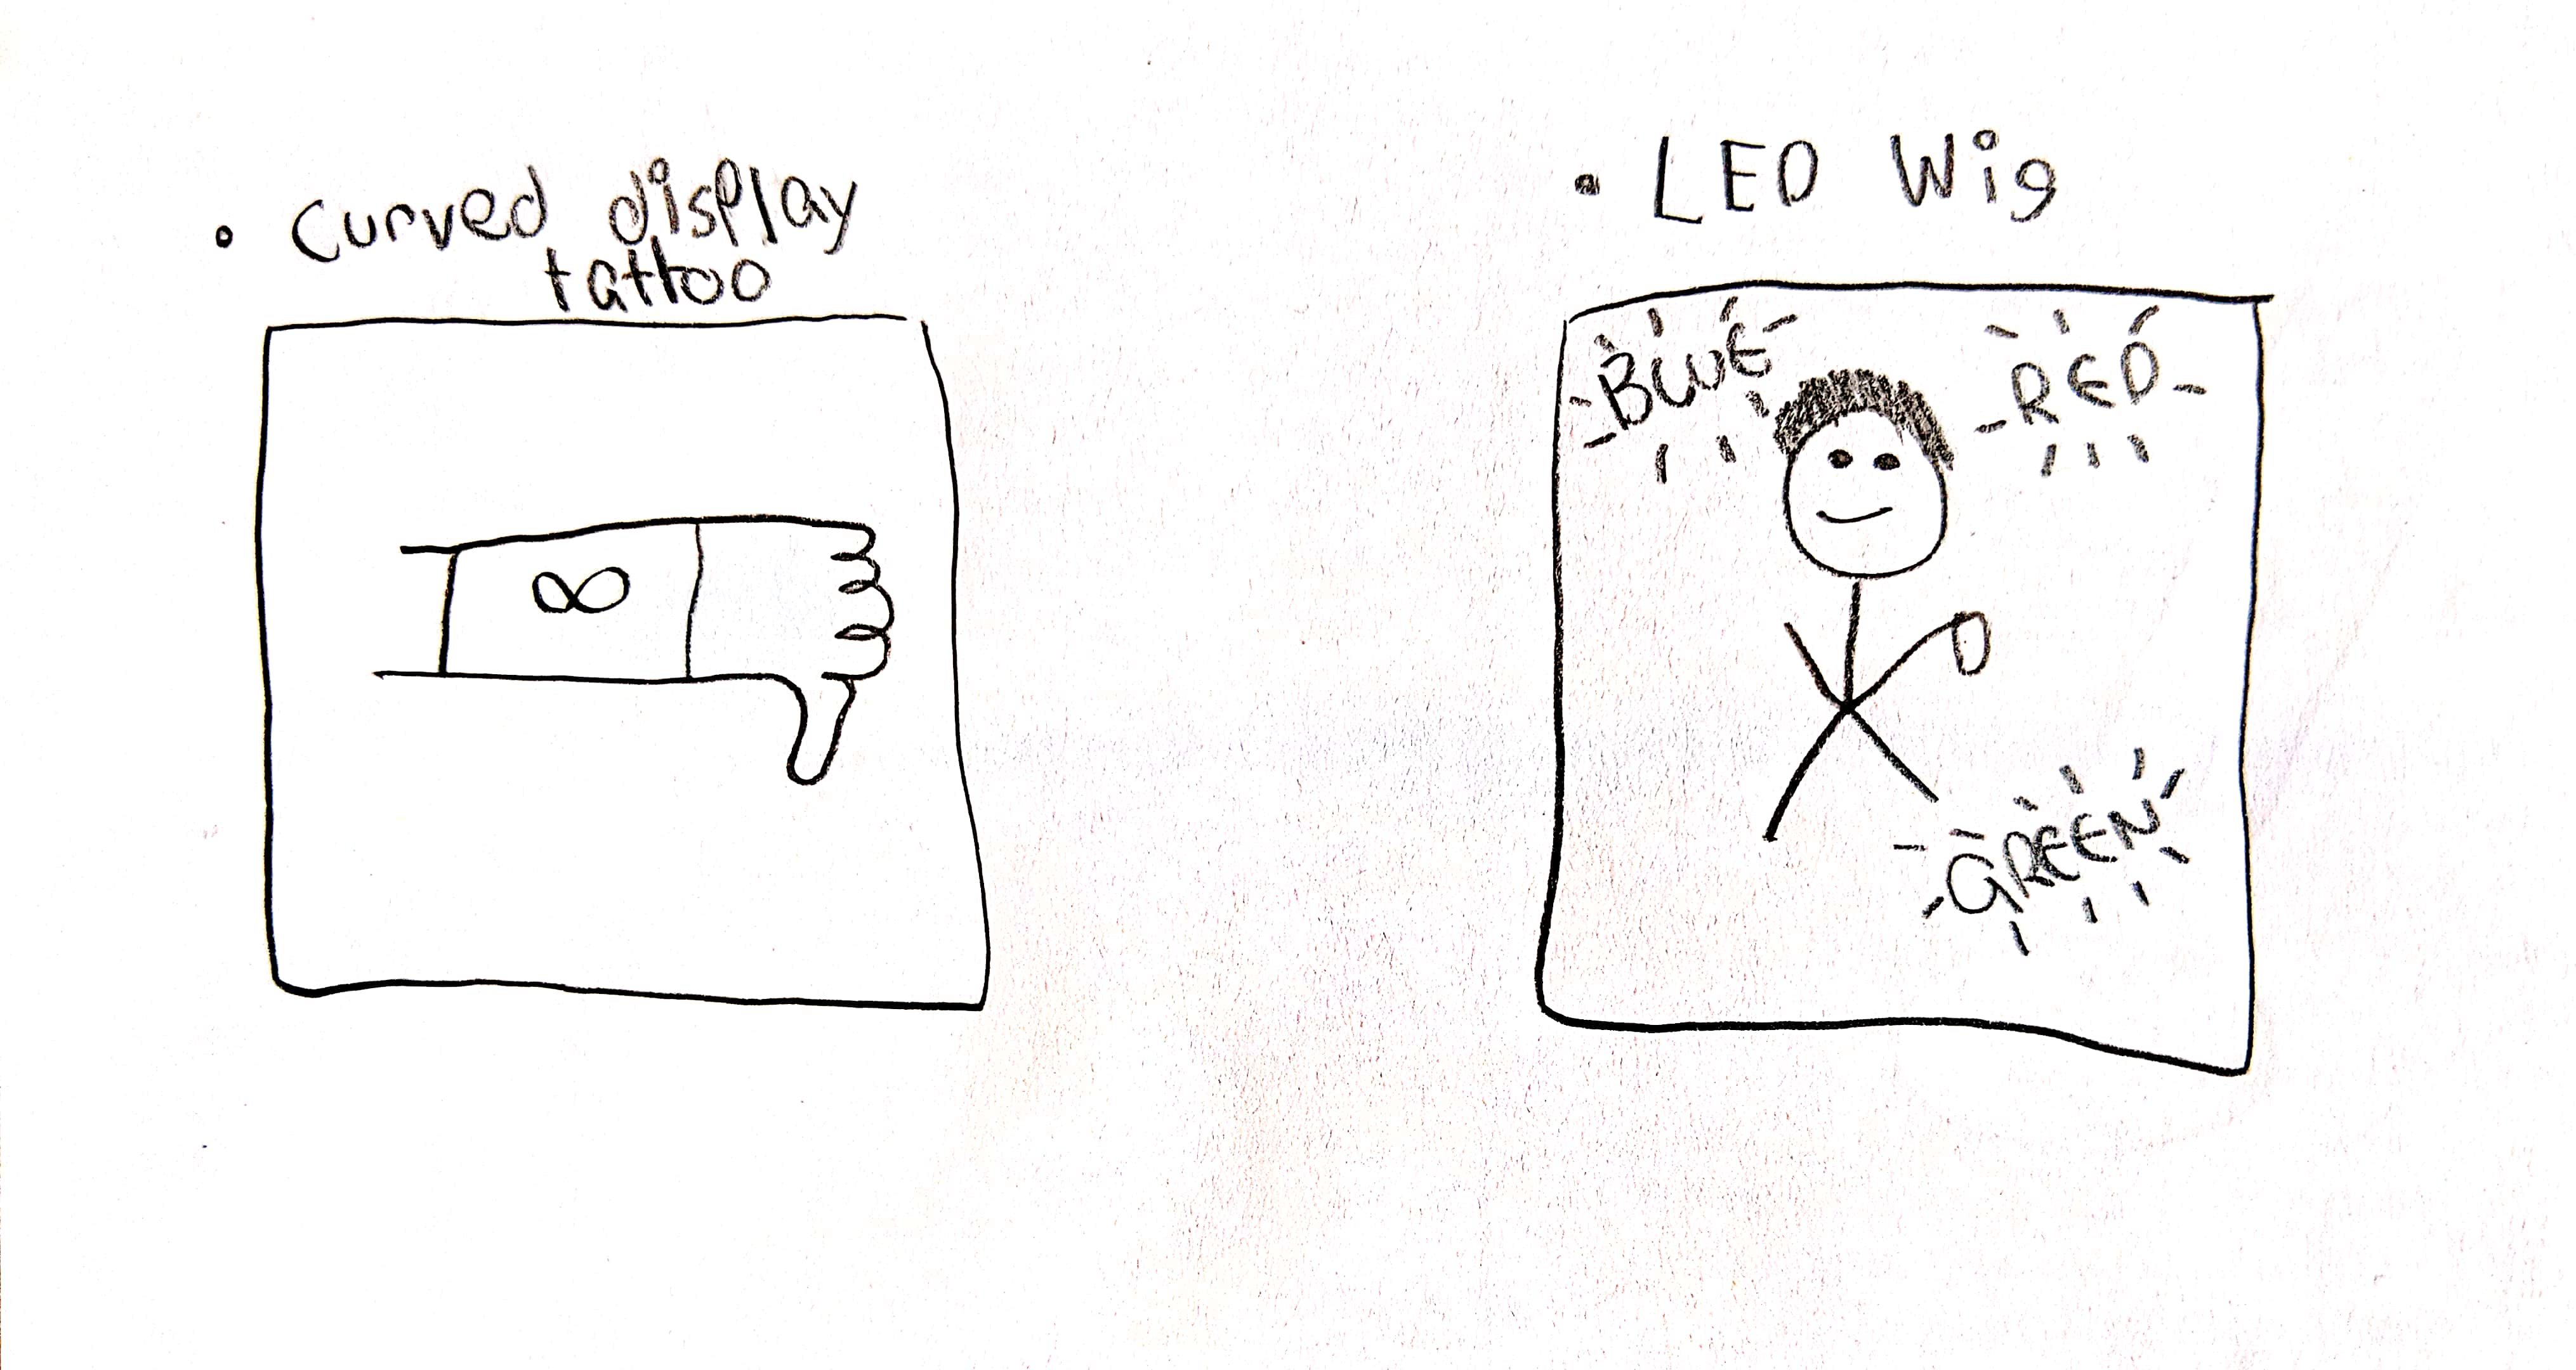 • Curved display
tattoo
∞
• LED Wig
BLUE
RED
GREEN